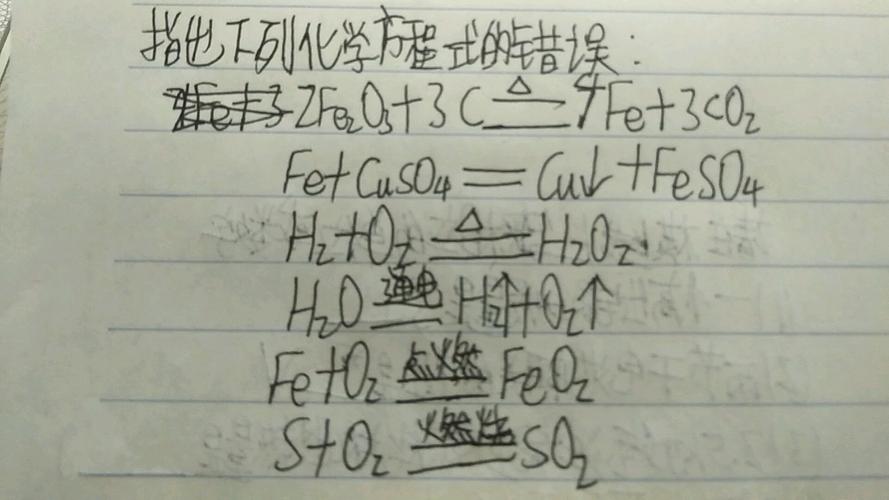 指出下列化学方程式的错误:
2Fe₂O₃+3C≜4Fe+3CO₂
Fe+CuSO₄=Cu↓+FeSO₄
H₂+O₂≜H₂O₂
H₂O 通电 = H₂↑+O₂↑
Fe+O₂ 点燃 = FeO₂
S+O₂ 燃烧 = SO₂